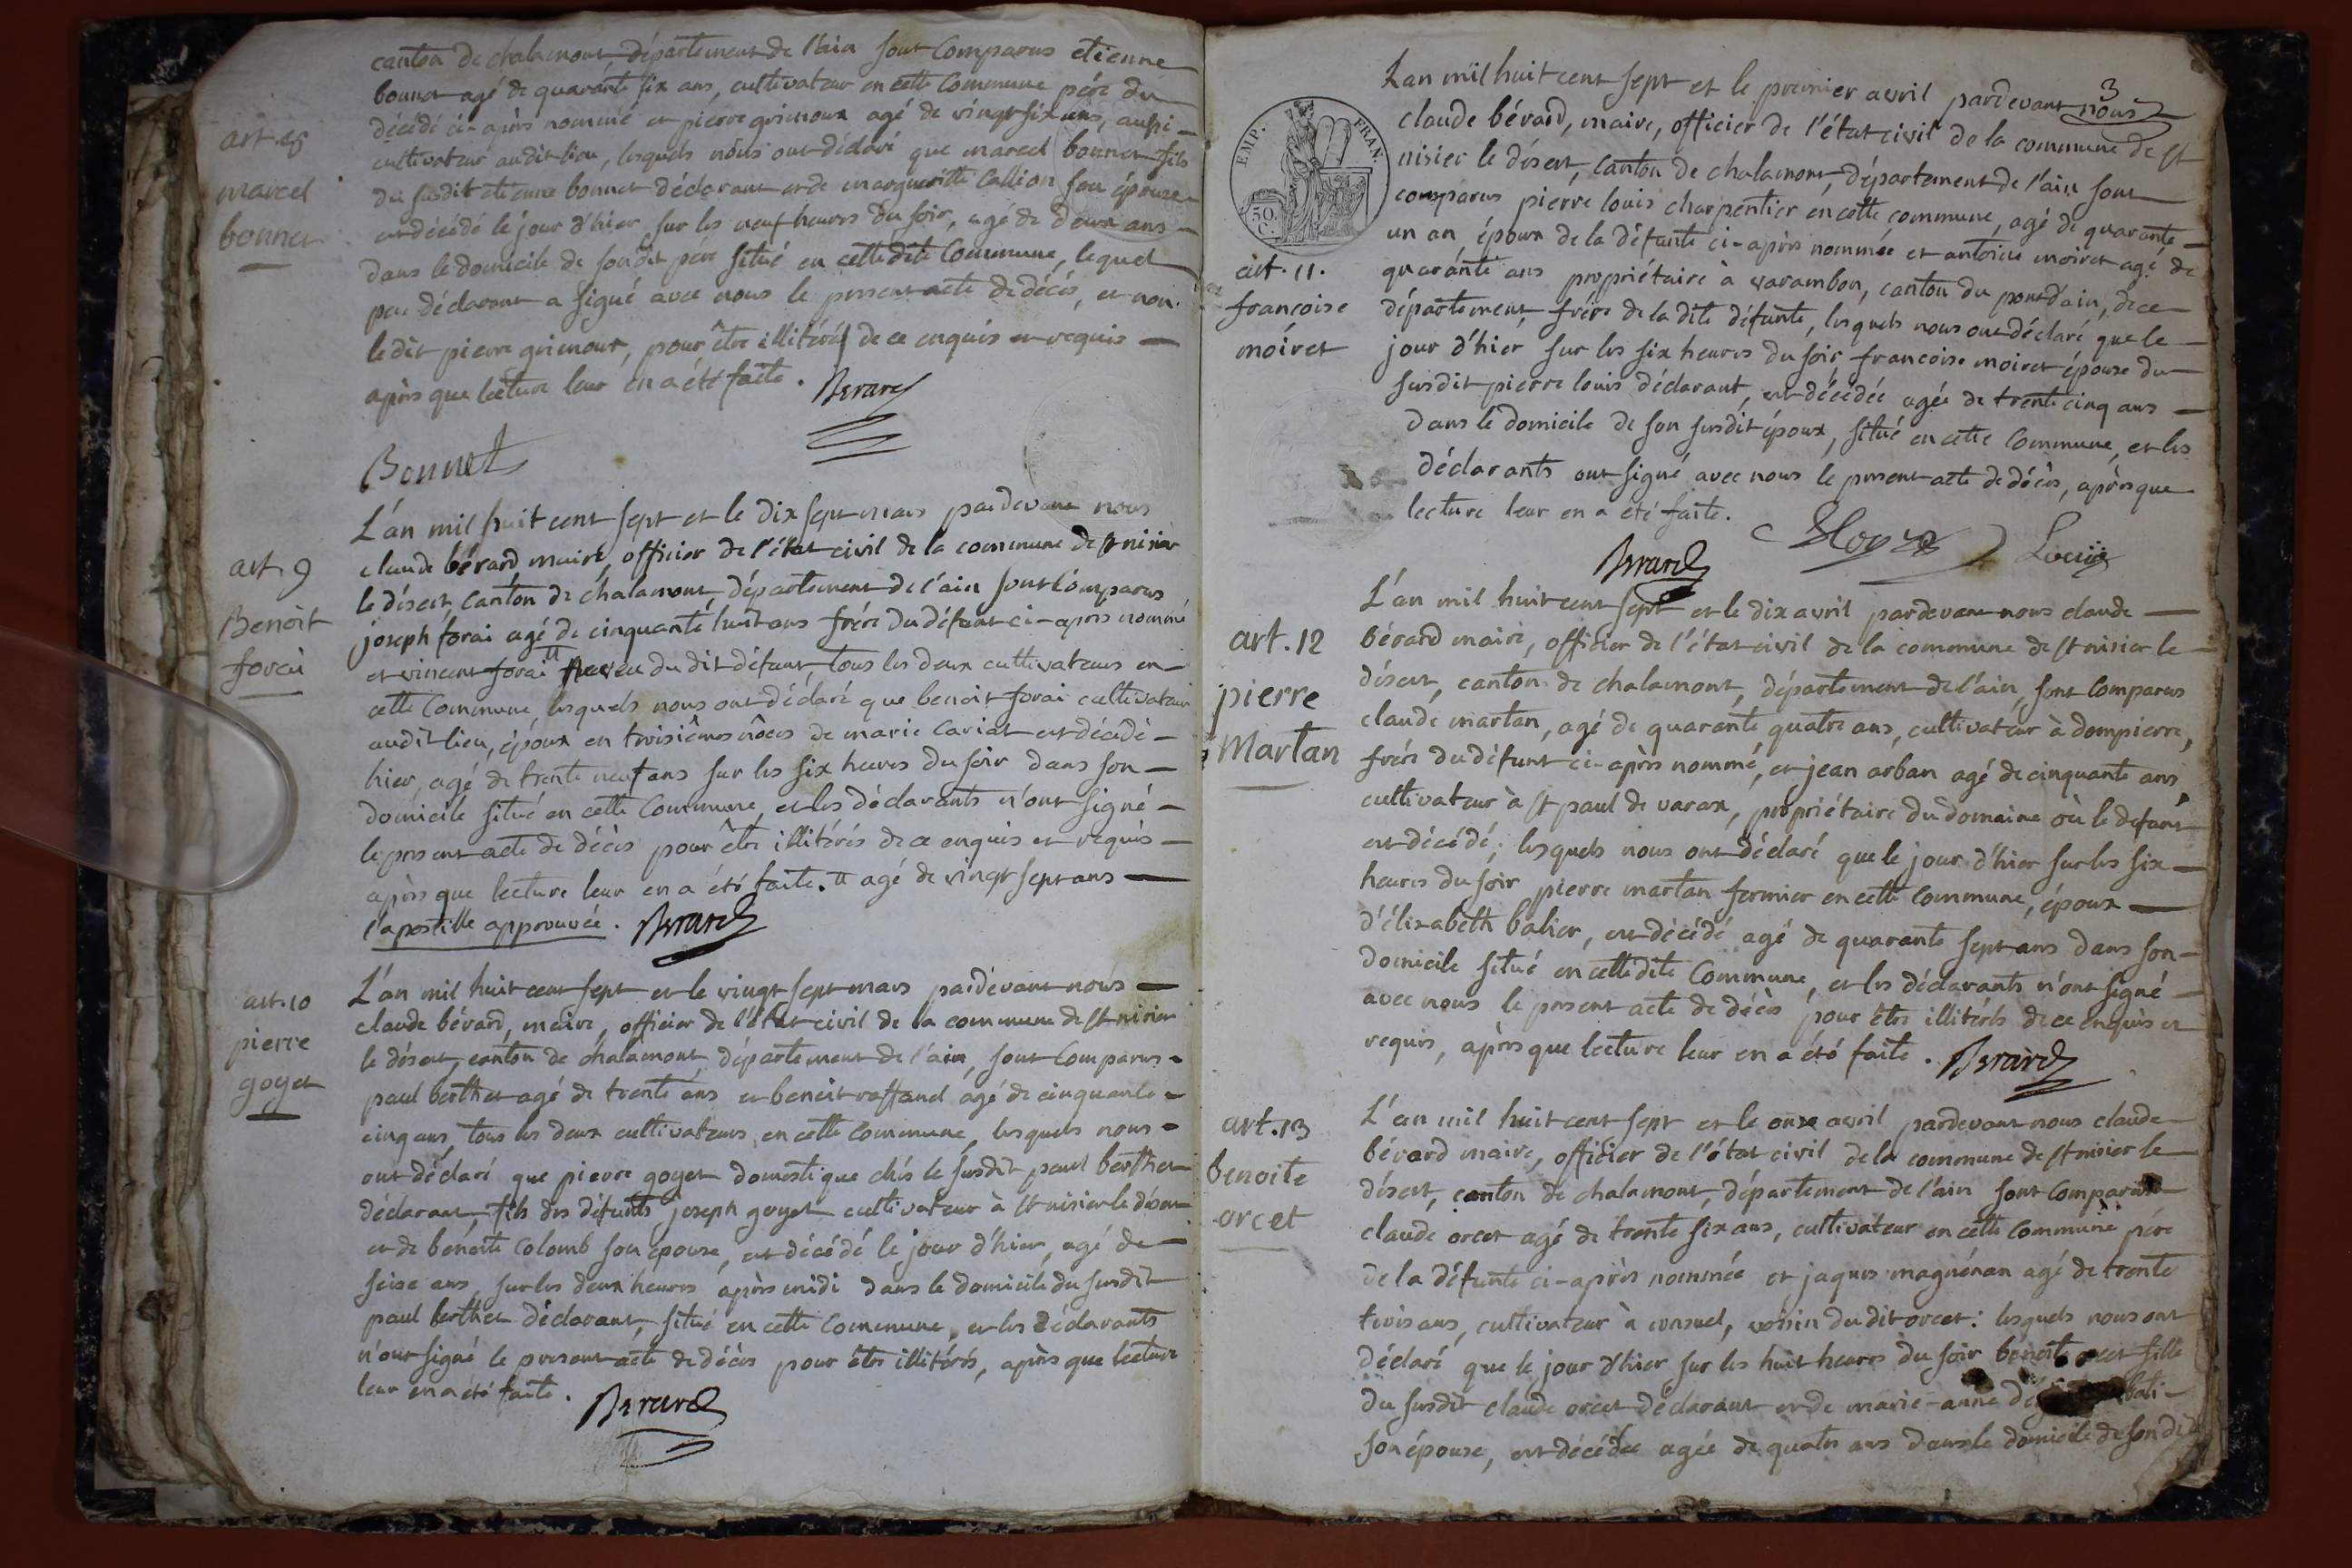 canton de chalamont, département de l'ain sont Comparus etienne
bonnet agé de quarante six ans, cultivateur en cette Commune pére du
décédé ci-après nommé et pierre grimoux agé de vingt six ans, aussi
art. 8
cultivateur audit lieu, lesquels nous ont déclaré que marcel bonnet fils
marcel
du susdit etienne bonnet déclarant et de margueritte Callion son épouse
bonnet
est décédé le jour d'hier sur les neuf heures du soir, agé de deux ans
dans le domicile de son dit pére situé en cette dite Commune, lequel
pére déclarant a signé avec nous le present acte de décés, et non
le dit pierre grimoux, pour être illitéré de ce enquis et requis
après que lecture leur en a été faite. Berard
Bonnet
L'an mil huit cent sept et le dix sept mars pardevant nous
art. 9
claude bérard, maire, officier de l'état civil de la commune de st nisier
le désert, canton de chalamont, département de l'ain sont Comparus
Benoit
joseph forai agé de cinquante huit ans frére du défunt ci-après nommé
forai
et vincent forai # neveu du dit défunt, tous les deux cultivateurs en
cette Commune, lesquels nous ont déclaré que benoit forai cultivateur
audit lieu, époux en troisiêmes nôces de marie Cariat est décédé
hier, agé de trente neuf ans sur les six heures du soir dans son
domicile situé en cette Commune, et les déclarants n'ont signé
le present acte de décès pour être illitérés de ce enquis et requis
après que lecture leur en a été faite. # agé de vingt sept ans
l'apostille approuvée. Berard
art. 10
L'an mil huit cent sept et le vingt sept mars pardevant nous
claude bérard, maire, officier de l'état civil de la commune de st nisier
pierre
le désert, canton de chalamont, département de l'ain, sont Comparus
goyet
paul berthet agé de trente ans et benoit raffand agé de cinquante
cinq ans, tous les deux cultivateurs en cette Commune, lesquels nous
ont déclaré que pierre goyet domestique chés le susdit paul berthet
déclarant, fils des défunts joseph goyet cultivateur à st nisier le désert
et de benoite Colomb son epouse, est décédé le jour d'hier, agé de
seise ans, sur les deux heures après midi dans le domicile du susdit
paul berthet déclarant, situé en cette Commune, et les déclarants
n'ont signé le present acte de décès pour être illitérés, après que lecture
leur en a été faite. Berard
3
L'an mil huit cent sept et le premier avril pardevant nous
claude bérard, maire, officier de l'état civil de la commune de st
EMP. FRAN.
nisier le désert, canton de chalamont, département de l'ain sont
comparus pierre louis charpentier en cette commune, agé de quarante
50. C.
un an, époux de la défunte ci-après nommée et antoine moiret agé de
art. 11.
quarante ans propriétaire à varambon, canton du pont d'ain, de ce
françoise
département, frére de la dite défunte, lesquels nous ont déclaré que le
moiret
jour d'hier sur les six heures du soir, francoise moiret épouse du
susdit pierre louis déclarant, est décédée agée de trente cinq ans
dans le domicile de son susdit époux, situé en cette Commune, et les
déclarants ont signé avec nous le present acte de décès, après que
lecture leur en a été faite.
Berard Louis
L'an mil huit cent sept et le dix avril pardevant nous claude
art. 12
bérard maire, officier de l'état civil de la commune de st nisier le
désert, canton de chalamont, département de l'ain, sont Comparus
pierre
claude martan, agé de quarante quatre ans, cultivateur à dompierre,
Martan
frére du défunt ci-après nommé, et jean arban agé de cinquante ans
cultivateur à st paul de varax, propriétaire du domaine où le defunt
est décédé, lesquels nous ont déclaré que le jour d'hier sur les six
heures du soir pierre martan fermier en cette Commune, époux
d'élizabeth balier, est décédé agé de quarante sept ans dans son
domicile situé en cette dite Commune, et les déclarants n'ont signé
avec nous le present acte de décès pour être illitérés de ce enquis et
requis, après que lecture leur en a été faite. Berard
art. 13
L'an mil huit cent sept et le onze avril pardevant nous claude
bérard maire, officier de l'état civil de la commune de st nisier le
benoite
désert, canton de chalamont, département de l'ain sont Comparus
orcet
claude orcet agé de trente six ans, cultivateur en cette Commune pére
de la défunte ci-après nommée et jaques magnénan agé de trente
trois ans, cultivateur à voisin du dit orcet: lesquels nous ont
déclaré que le jour d'hier sur les huit heures du soir benoite orcet fille
du susdit claude orcet déclarant et de marie-anne
son épouse, est décédée agée de quatre ans dans le domicile de son dit